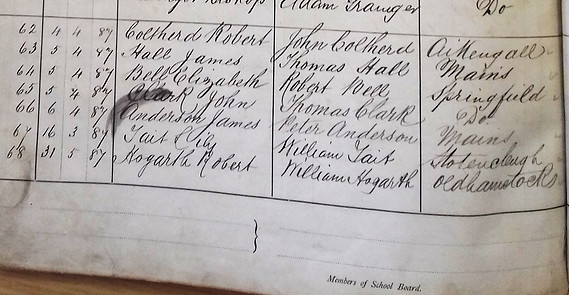 Adam Grainger Do
62 4 4 87 Coltherd Robert John Coltherd Aikengall
63 5 4 87 Hall James Thomas Hall Mains
64 5 4 87 Bell Elizabeth Robert Bell Springfield
65 5 4 87 Clark John Thomas Clark Do
66 6 4 87 Anderson James Peter Anderson Mains
67 16 3 87 Tait William Tait Stotencleugh
68 31 5 87 Hogarth Robert William Hogarth Oldhamstocks
Members of School Board.